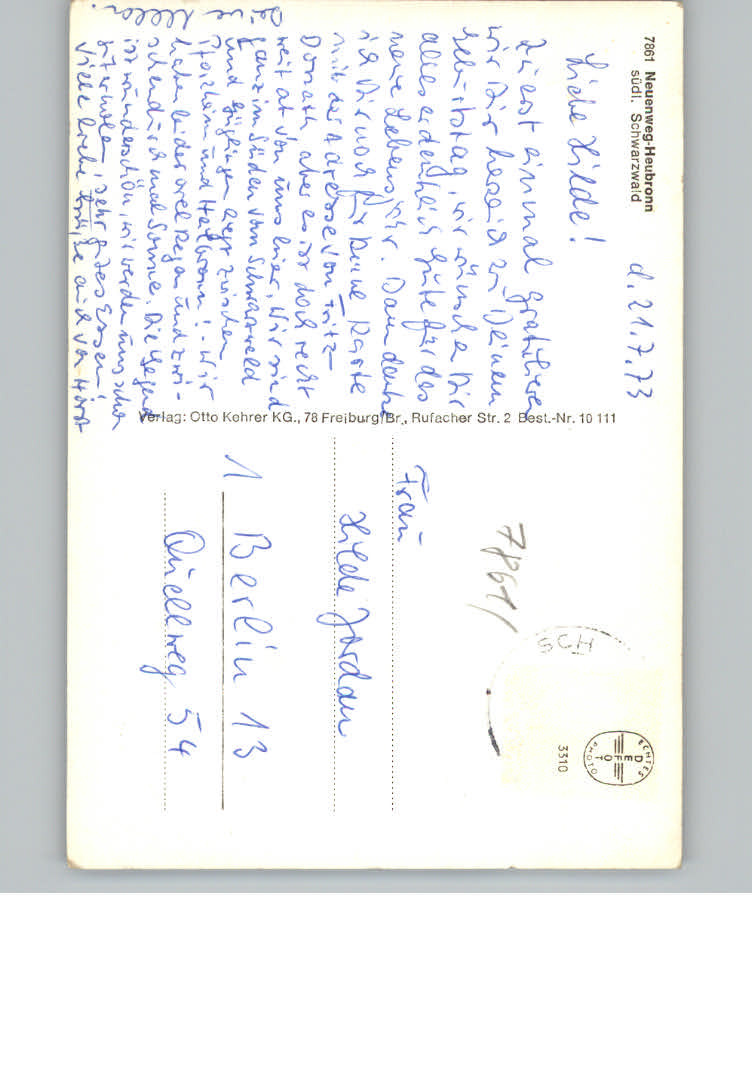 7861 Neuenweg-Heubronn
südl. Schwarzwald
d. 21.7.73
Liebe Hilde!
Zuerst einmal gratulieren
wir Dir herzlich zu Deinem
Geburtstag, wir wünschen Dir
alles erdenklich Gute für das
neue Lebensjahr. Dann danke
ich Dir noch für Deine Karte
mit der Adresse von Fritz
Donath, aber es ist doch recht
weit ab von uns hier. Wir sind
ganz im Süden vom Schwarzwald
und liegt zwischen
Pforzheim und Heilbronn! - Wir
haben leider viel Regen und zwi-
schendurch mal Sonne. Die Gegend
ist wunderschön, wir werden uns schon
gut erholen, sehr gutes Essen!
Viele liebe Grüße auch von Horst
Deine
Verlag: Otto Kehrer KG., 78 Freiburg/Br., Rufacher Str. 2 Best.-Nr. 10 111
Frau
Hilde Jordan
1 Berlin 13
Quellweg 54
7861
ECHTES
DEFOT
PHOTO
3310